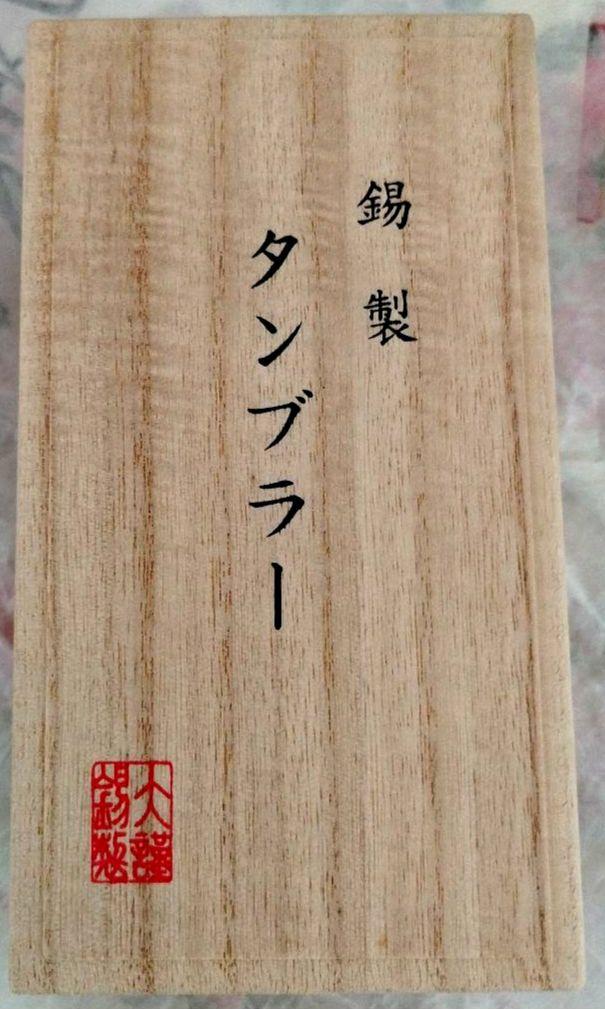 錫製
タンブラー
大謹
錫製